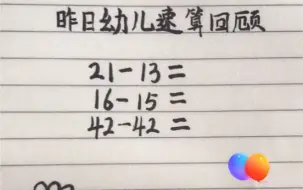 昨日幼儿速算回顾
21-13=
16-15=
42-42=